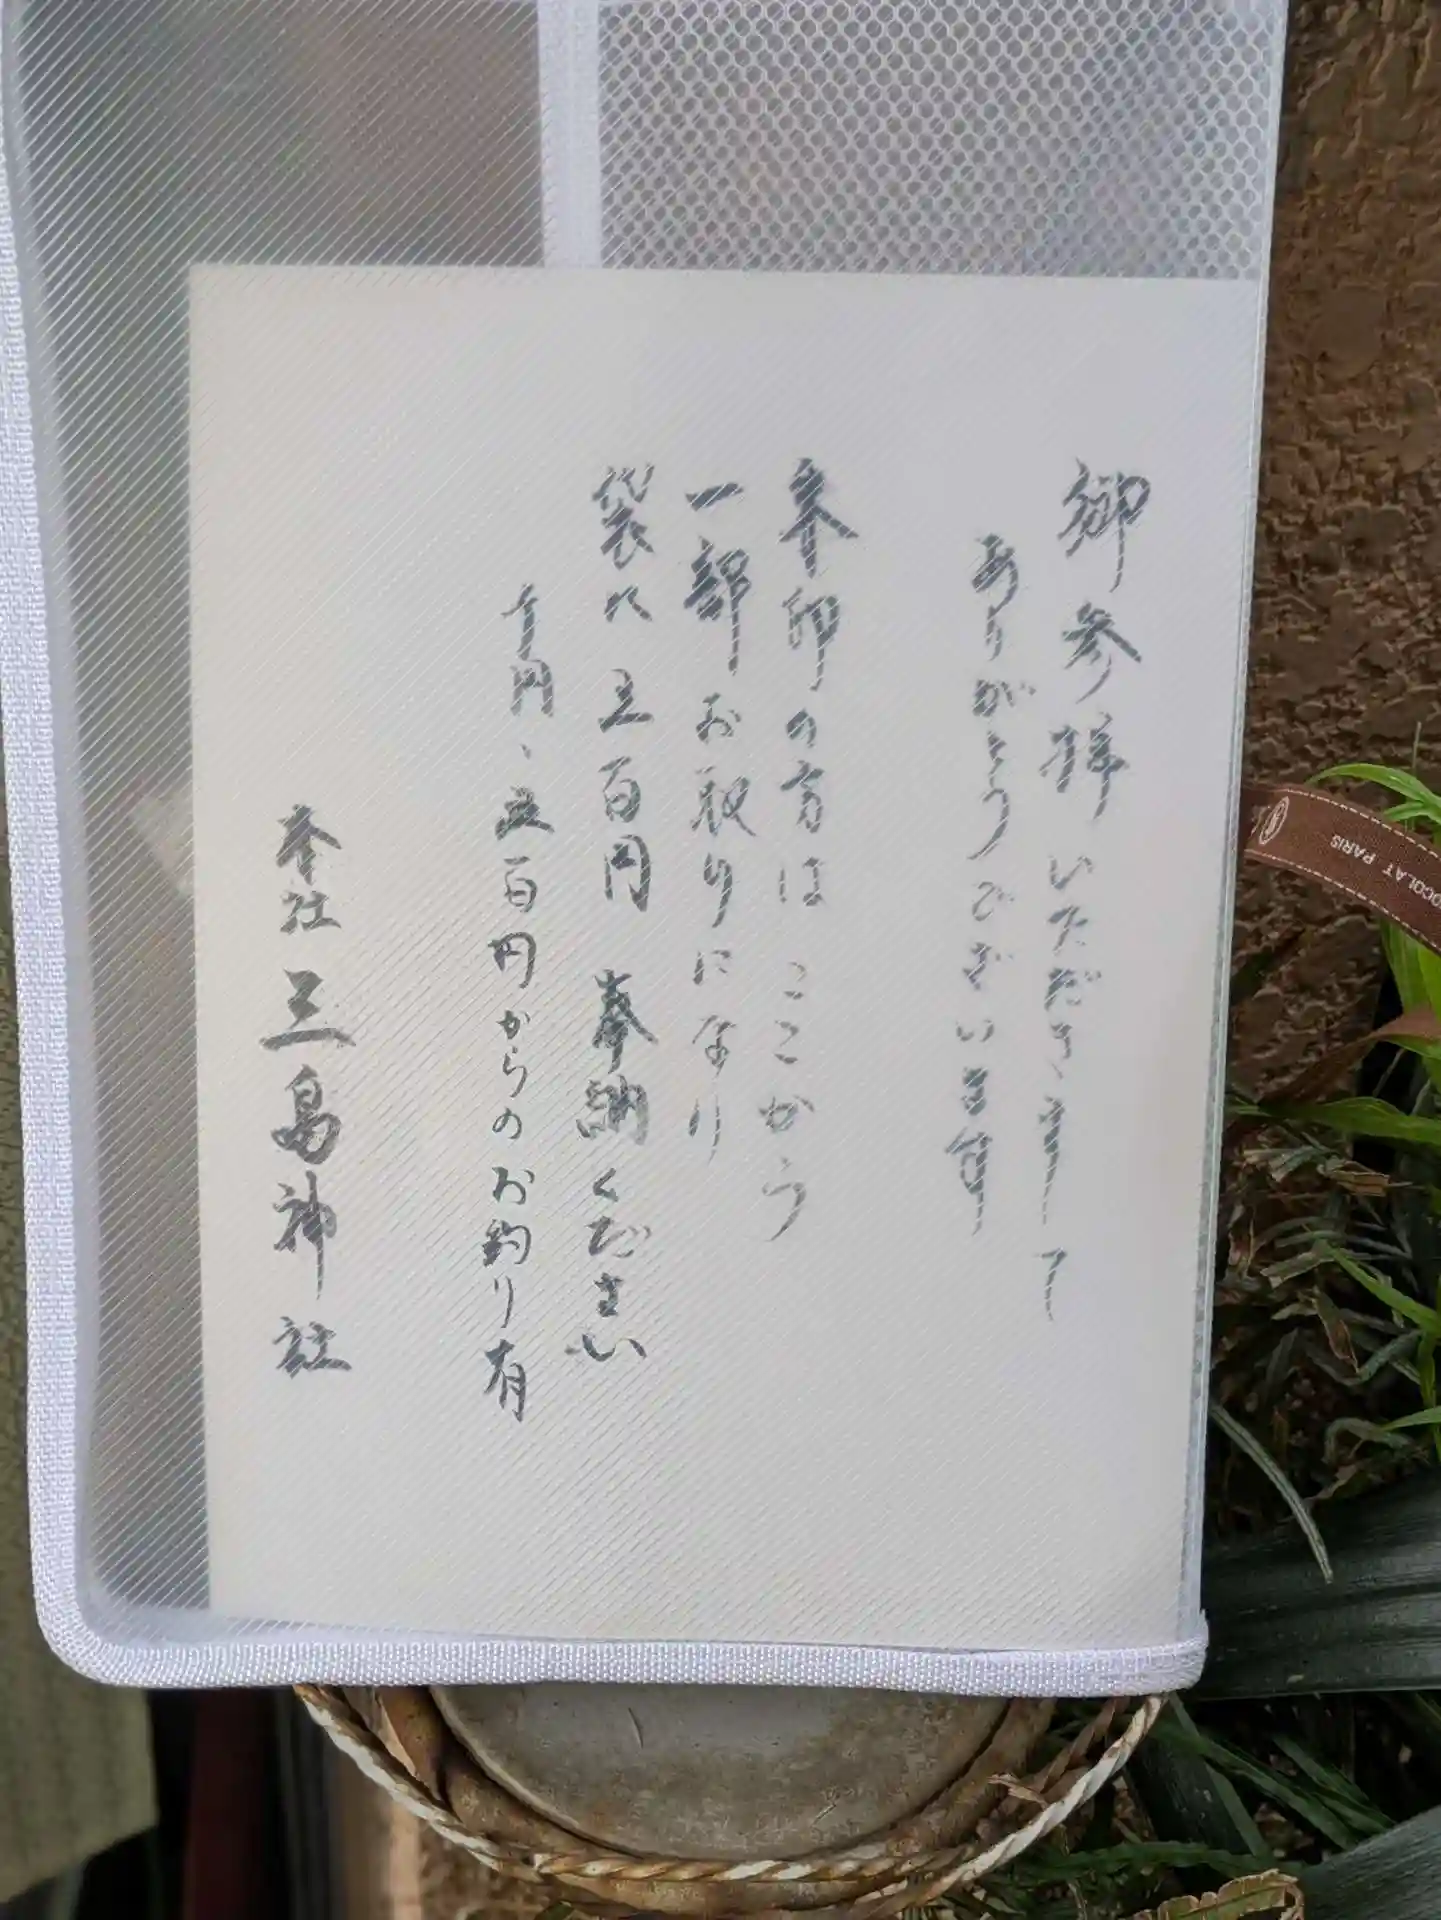 御参拝いただきまして
ありがとうございます
朱印の方はここから
一部お取りになり
袋に五百円奉納ください
千円、五百円からのお釣り有
本社三島神社
OCOLAT PARIS